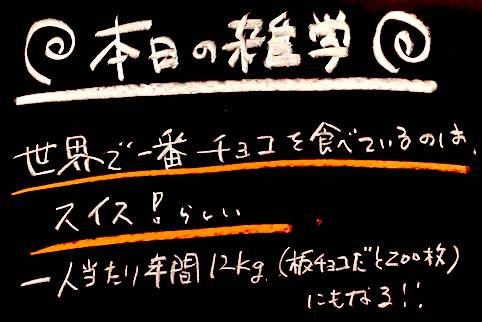 本日の雑学
世界で一番チョコを食べているのは、
スイス!らしい
一人当たり年間12kg(板チョコだと200枚)
にもなる!!